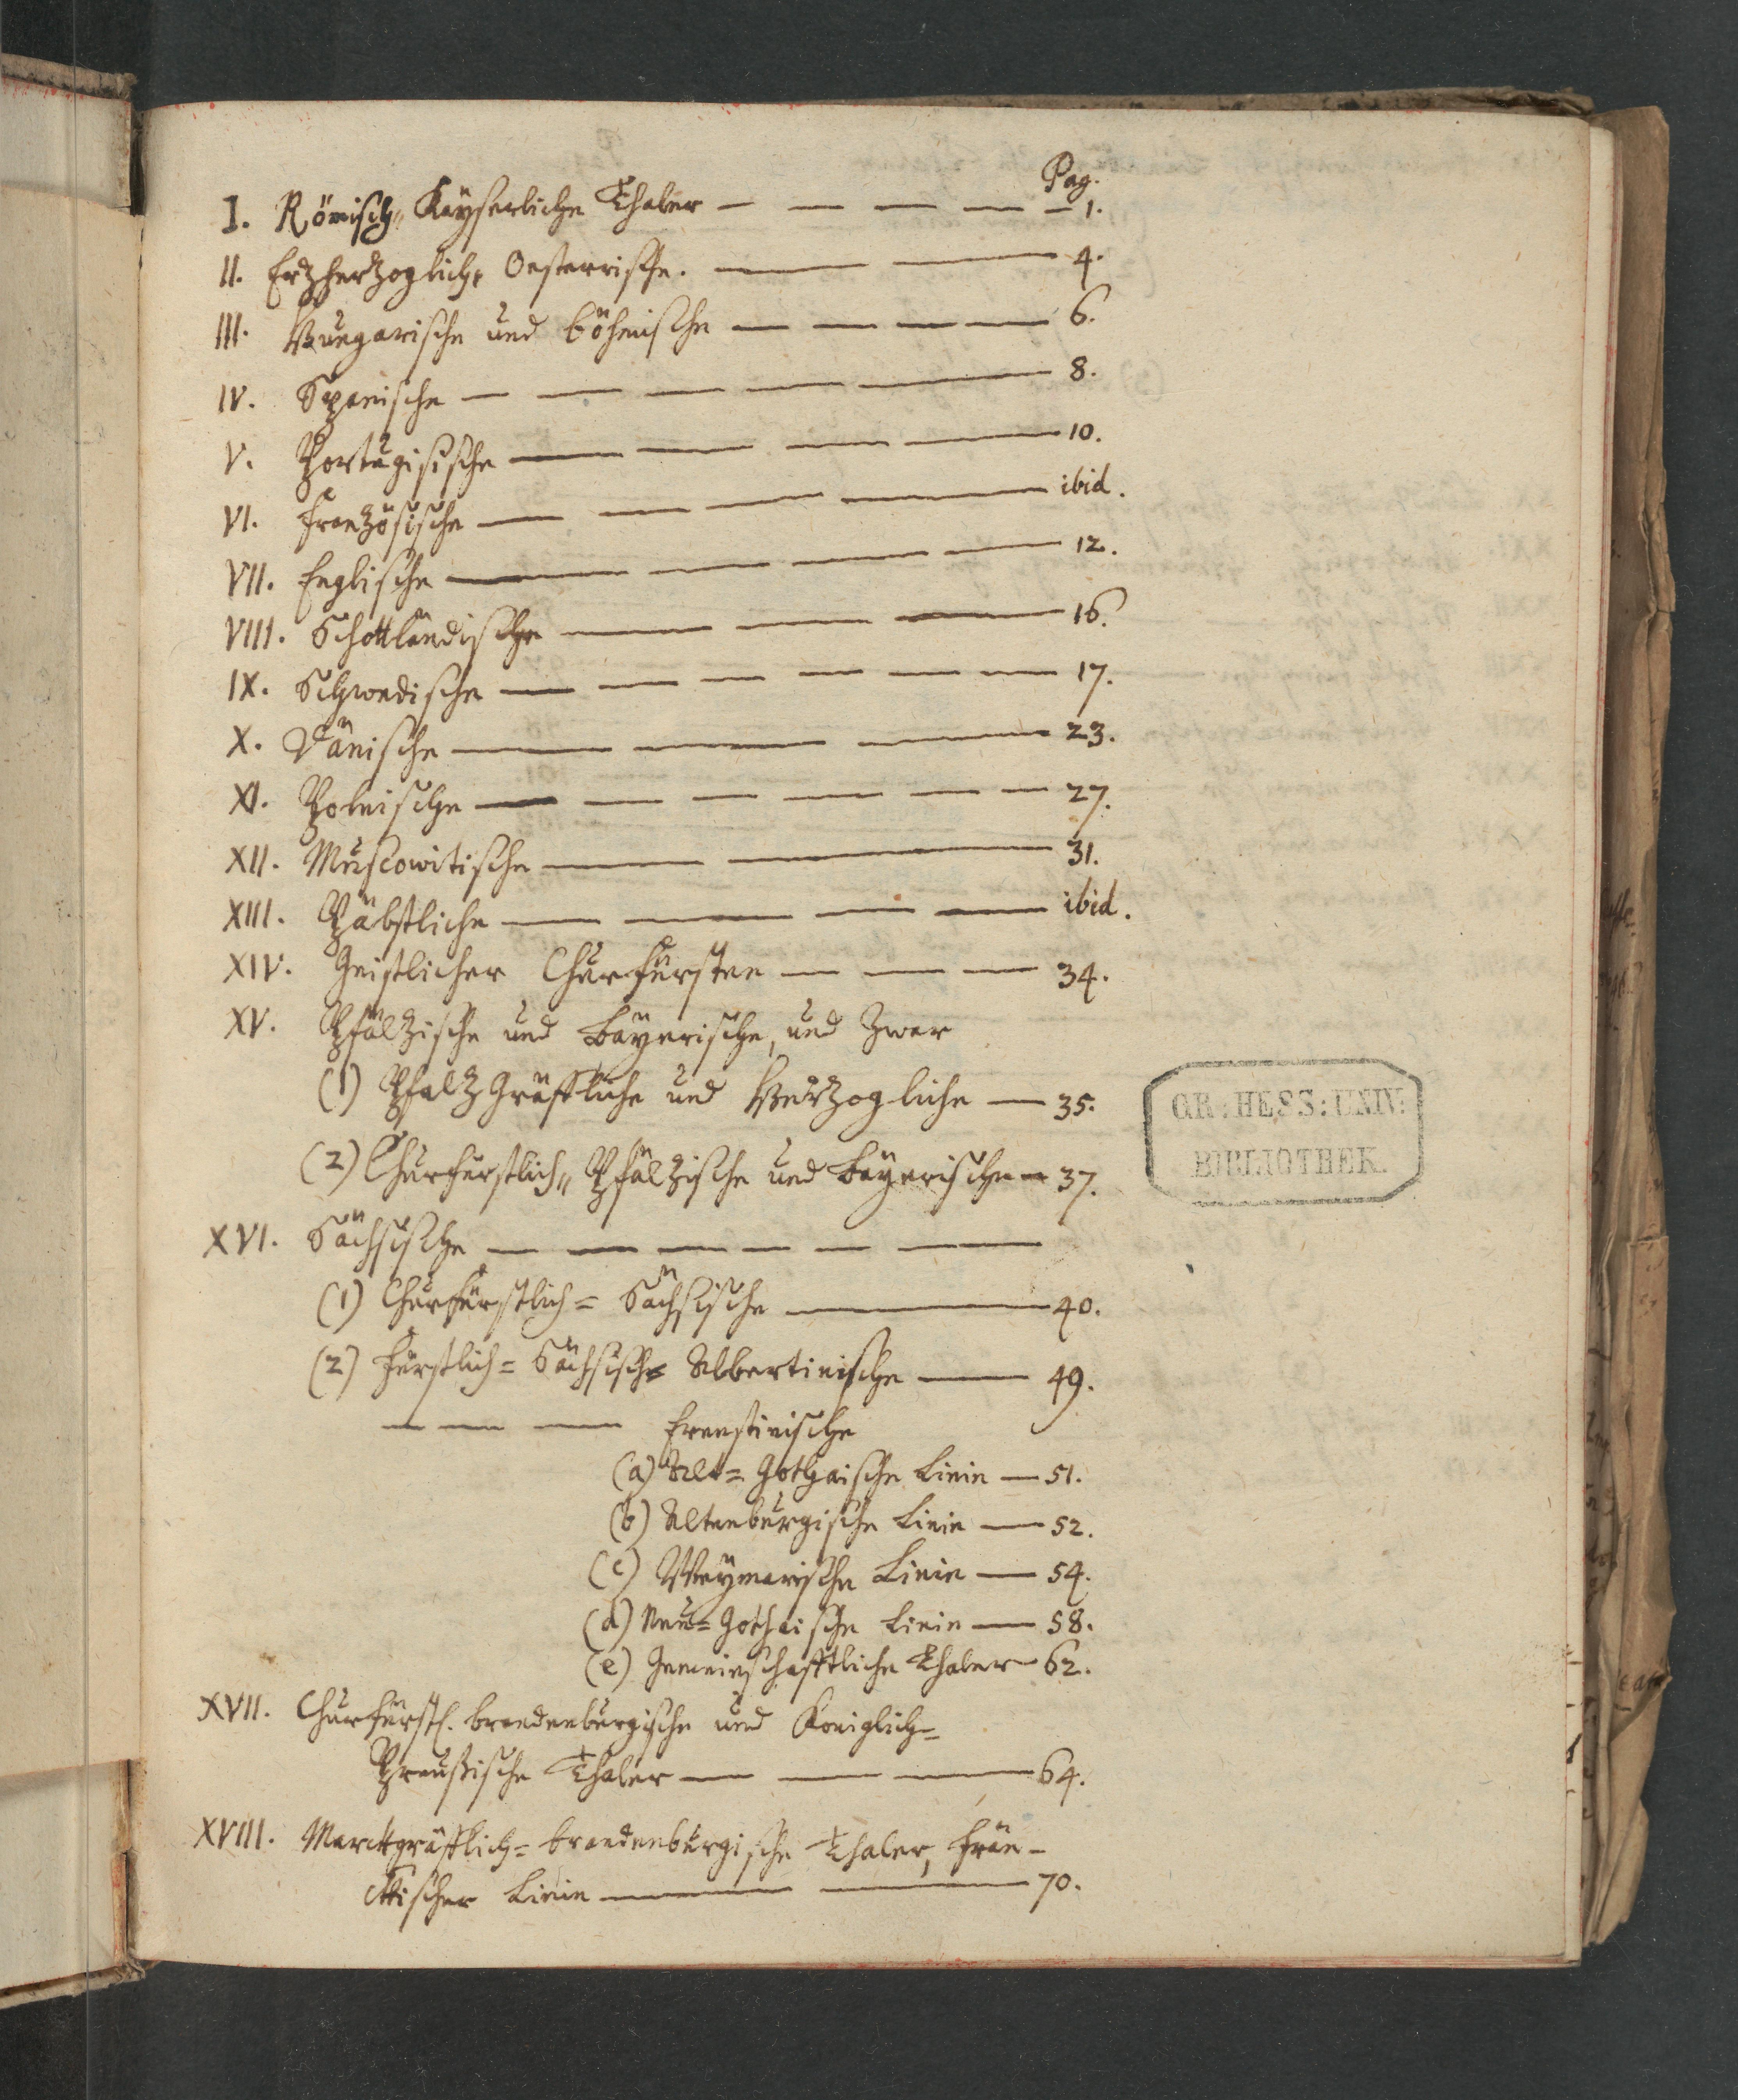 Pag.
I. Römisch„ Kayserliche Thaler — — — — — 1.
II. Ertzhertzoglich„ Oesterrische. — — 4.
III. Hungarische und böhmische — — — — 6.
IV. Spanische — — — — — 8.
V. Portugisische — — — — 10.
VI. Französische — — — — ibid.
VII. Englische — — — — 12.
VIII. Schottländische — — — 16.
IX. Schwedische — — — — — — 17.
X. Dänische — — — 23.
XI. Polnische — — — — — — 27.
XII. Muscowitische — — 31.
XIII. Päbstliche — — — — ibid.
XIV. Geistlicher Churfürsten — — — 34.
XV. Pfältzische und Bayerische, und zwar
(1) Pfaltzgräffliche und Hertzogliche — 35.
(2) Churfürstlich„ Pfältzische und Bayerische — 37.
XVI. Sächsische — — — — — —
(1) Churfürstlich= Sächsische — 40.
(2) Fürstlich= Sächsisch= Albertinische — 49.
— — — Ernestinische
(a) Alt= Gothaische Linie — 51.
(b) Altenburgische Linie — 52.
(c) Weymarische Linie — 54.
(d) Neu= Gothaische Linie — 58.
(e) Gemeinschafftliche Thaler — 62.
XVII. Churfürstl. brandenburgische und Königlich=
Preußische Thaler — — — 64.
XVIII. Marckgräfflich= brandenburgische Thaler, Frän-
ckischer Linie — — 70.
GR: HESS: UNIV:
BIBLIOTHEK.